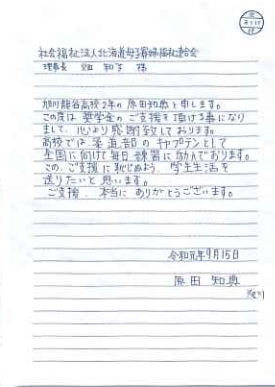 社会福祉法人北海道母子寡婦福祉連合会
理事長 畑 和子 様
旭川龍谷高校2年の原田知典と申します。
この度は奨学金のご支援を頂ける事になり
まして、心より感謝致しております。
高校では柔道部のキャプテンとして
全国に向けて毎日練習に励んでおります。
この、ご支援に恥じぬよう、学生生活を
送りたいと思います。
ご支援、本当にありがとうございます。
令和元年9月15日
原田 知典